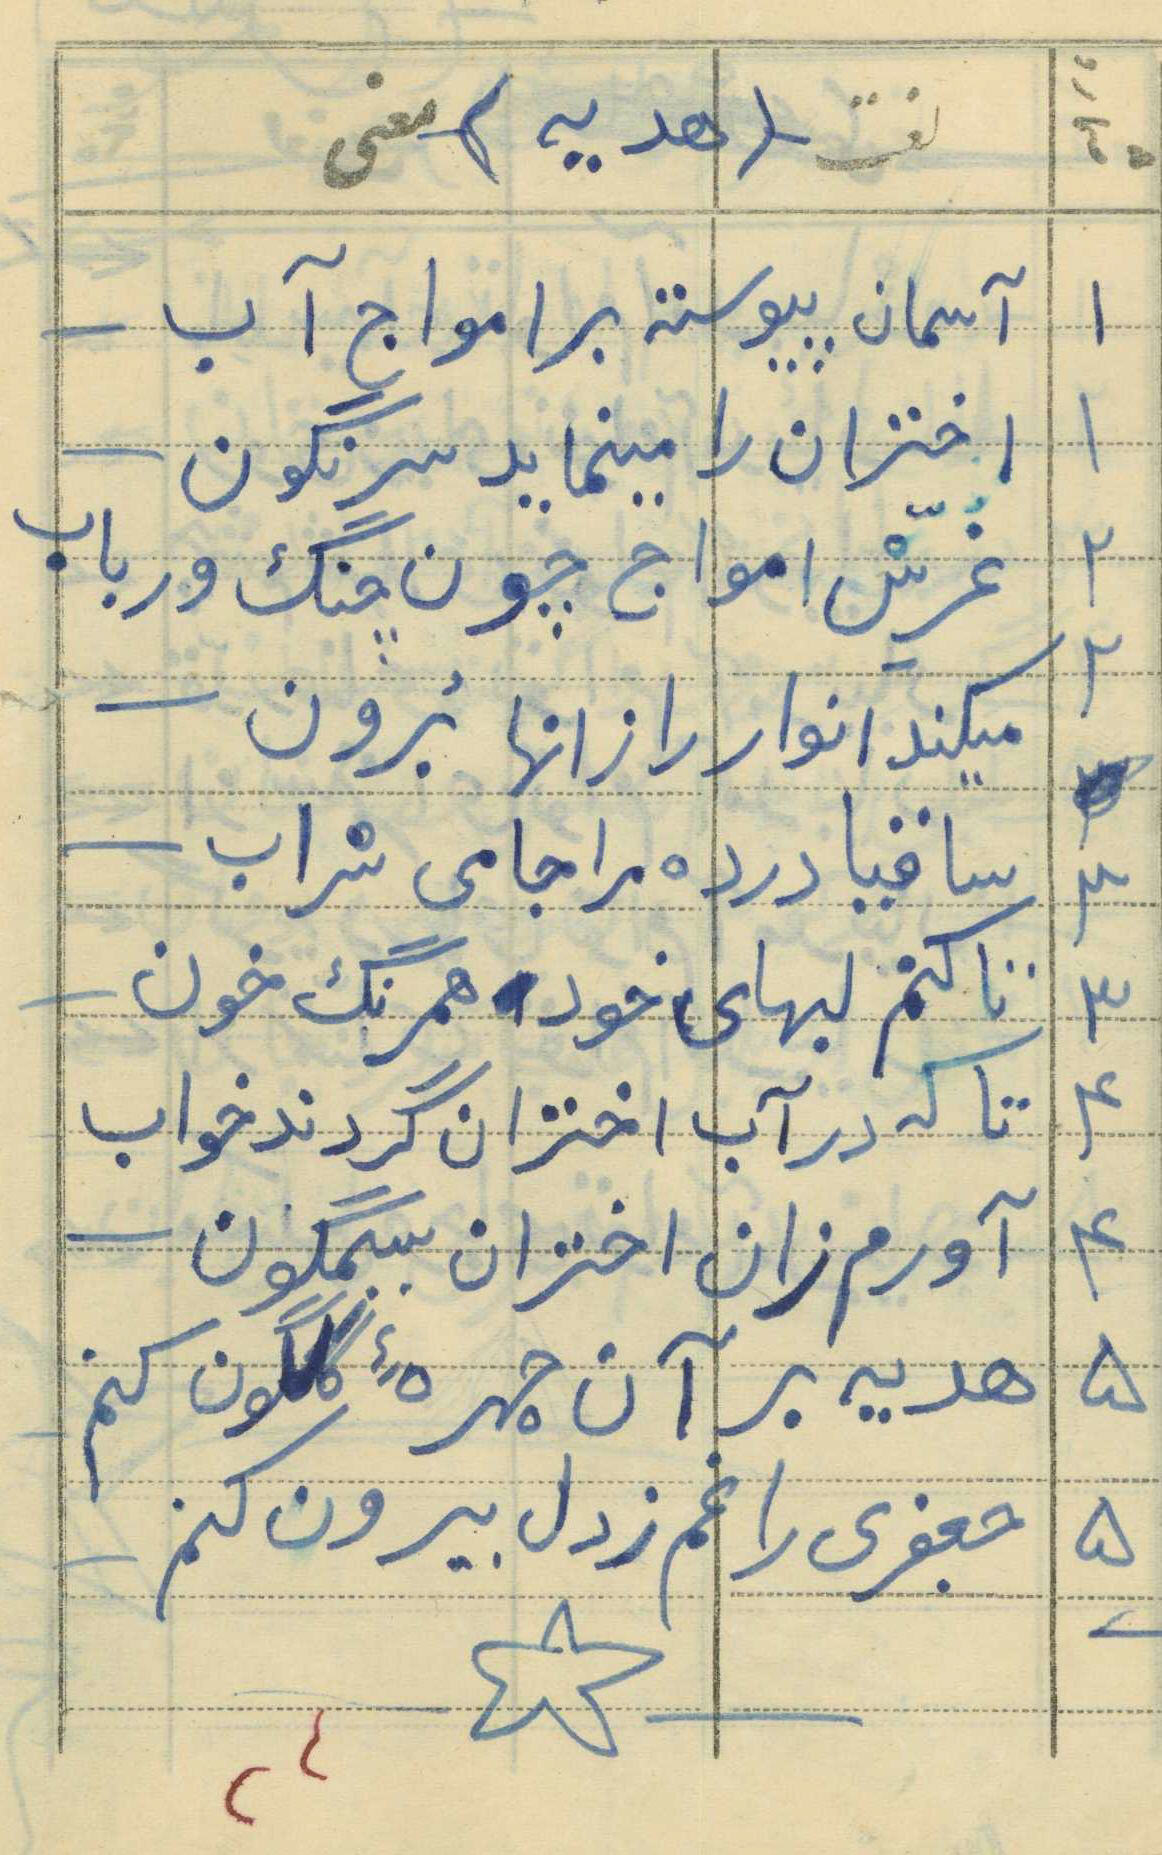 شماره لغت (هدیه) معنی
۱ آسمان پیوسته بر امواج آب –
۱ اختران را مینماید سرنگون –
۲ غرّش امواج چون چنگ و رباب
۲ میکند انوار را زانها بُرون –
۳ ساقیا درده مرا جامی شراب –
۳ تا کنم لبهای خود همرنگ خون –
۴ تا که در آب اختران گردند خواب
۴ آورم زان اختران سیمگون –
۵ هدیه بر آن چهرهٔ گلگون کنم
۵ جعفری را غم ز دل بیرون کنم –